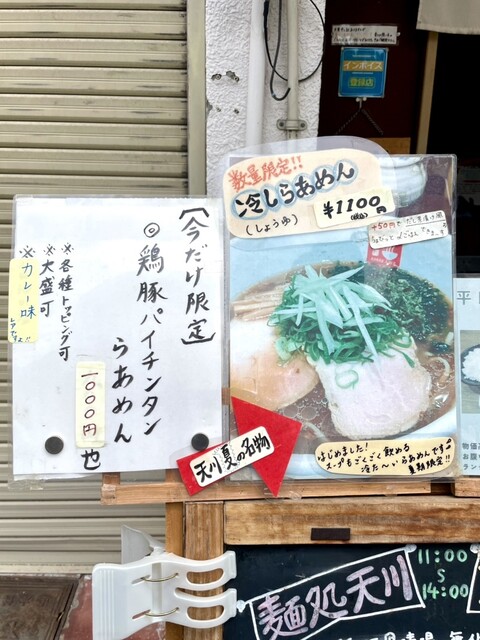 【今だけ限定】
◎鶏豚パイチンタン
らあめん
一〇〇〇円也
※各種トッピング可
※大盛可
※カレー味
レアですよ!!
インボイス
登録店
数量限定!!
冷しらあめん
(しょうゆ)
¥1100円
(税込)
+50円で
天川夏の名物
はじめました!
スープもごくごく飲める
冷た〜いらあめんです♪
数量限定!!
麺処天川
11:00
14:00
物価
お願
ラン